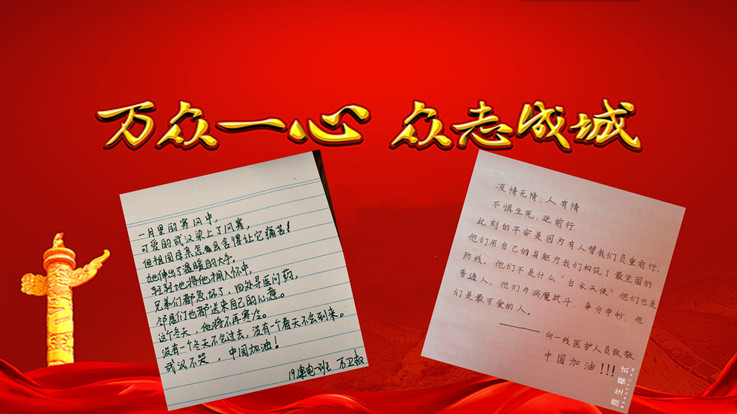 万众一心 众志成城
一月里的寒风中，
可爱的武汉染上了风寒，
但祖国母亲怎么会舍得让它痛苦！
她伸出了温暖的大手，
轻轻地将他拥入怀中，
兄弟们都急坏了，四处寻医问药，
邻居们也都送来自己的心意。
这个冬天，他将不再寒冷。
没有一个冬天不会过去，没有一个春天不会到来。
武汉不哭，中国加油！
疫情无情，人有情
不惧生死，逆前行。
此刻的平安是因为有人替我们负重前行，
他们用自己的身躯为我们构筑了最坚固的
防线，他们不是什么“白衣天使”他们也是
普通人，他们与病魔战斗，争分夺秒，他
们是最可爱的人。
——向一线医护人员致敬
中国加油!!!